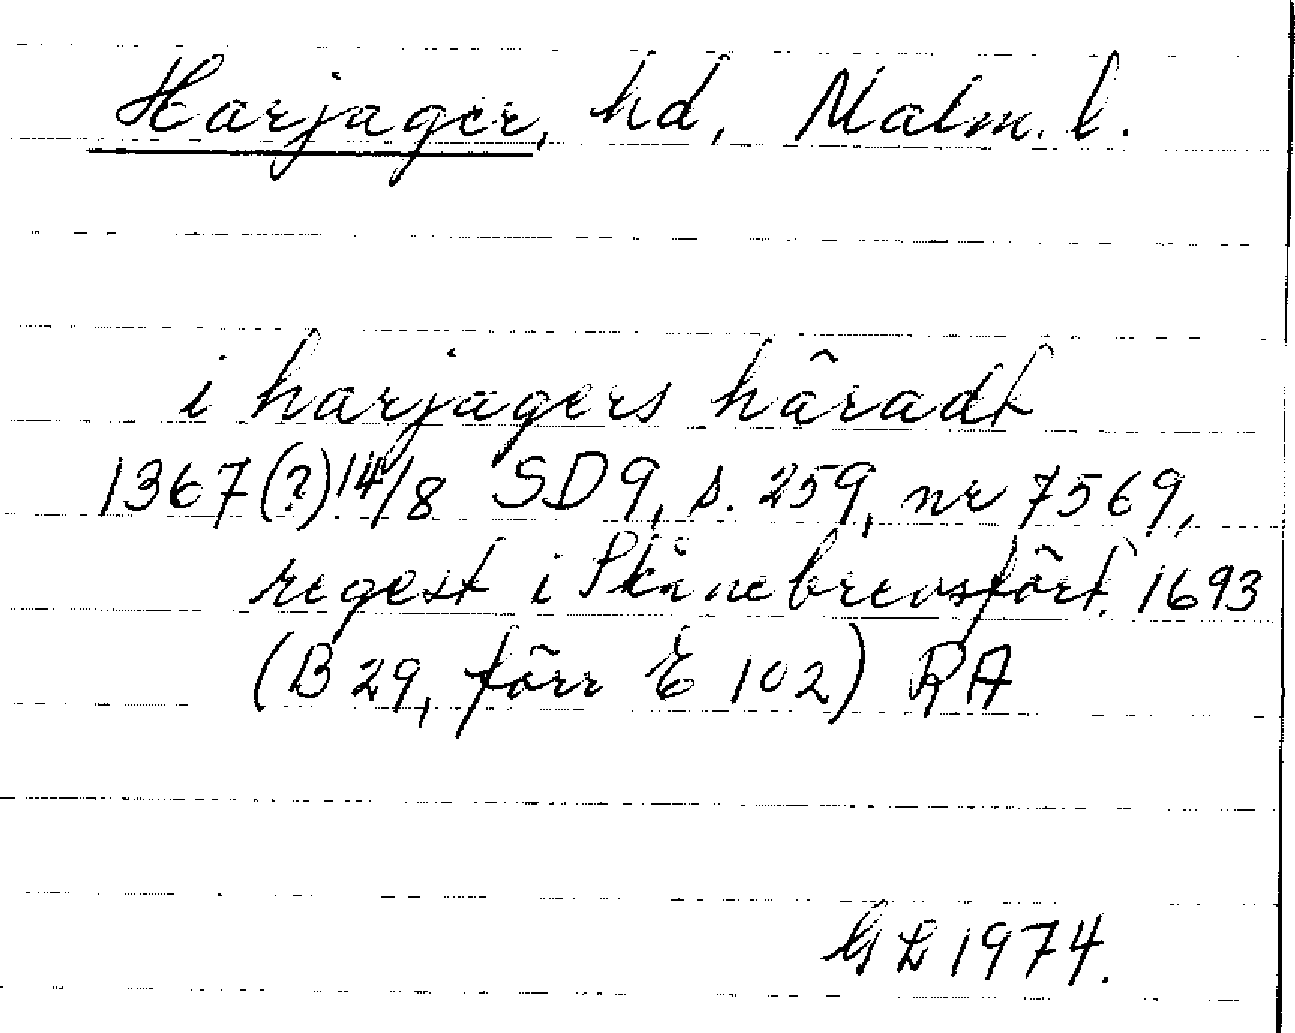 Harjager, hd, Malm. l.
i harjagers häradt
1367(?) 14/8 SD 9, s. 259, nr 7569,
regest i Skånebrevsfört. 1693
(B 29, förr E 102) RA
GL 1974.